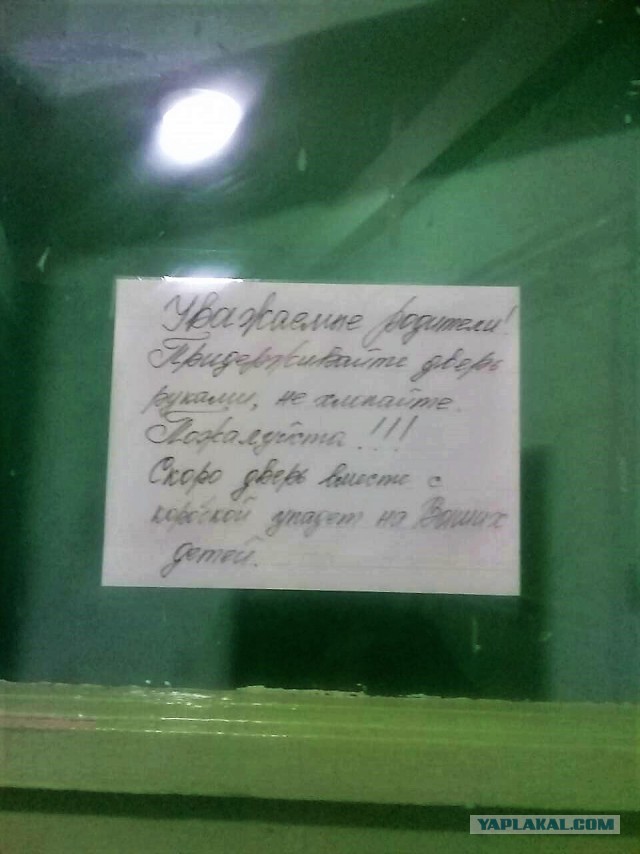 Уважаемые родители!
Придерживайте дверь
руками, не хлопайте.
Пожалуйста!!!
Скоро дверь вместе с
коробкой упадет на Ваших
детей.
YAPLAKAL.COM